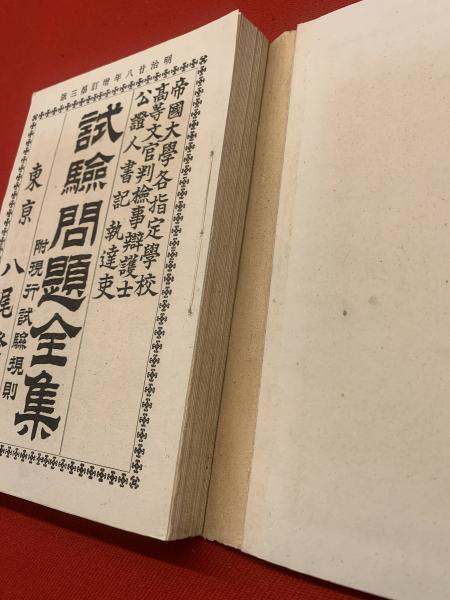 明治廿八年增訂第三版
帝國大學各指定學校
高等文官判檢事辯護士
公證人書記執達吏
試驗問題全集
附現行試驗規則
東京 八尾